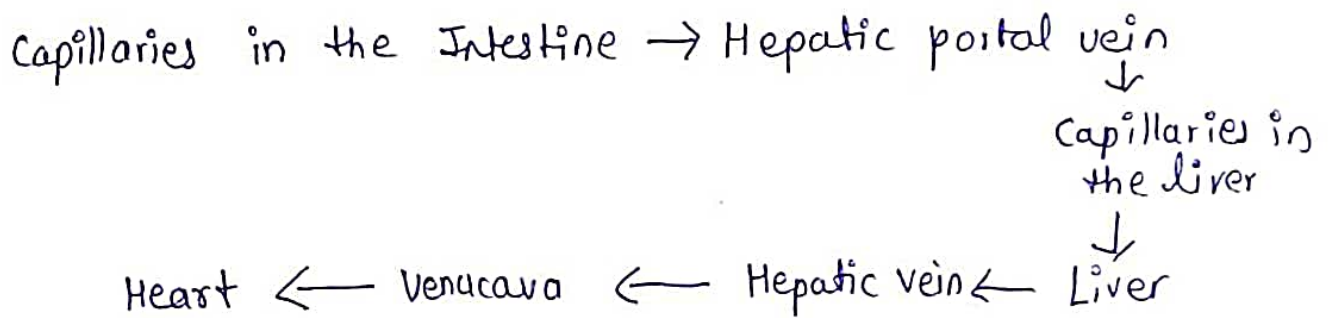 Capillaries in the Intestine → Hepatic portal vein
↓
Capillaries in
the liver
↓
Heart ← Venucava ← Hepatic vein ← Liver